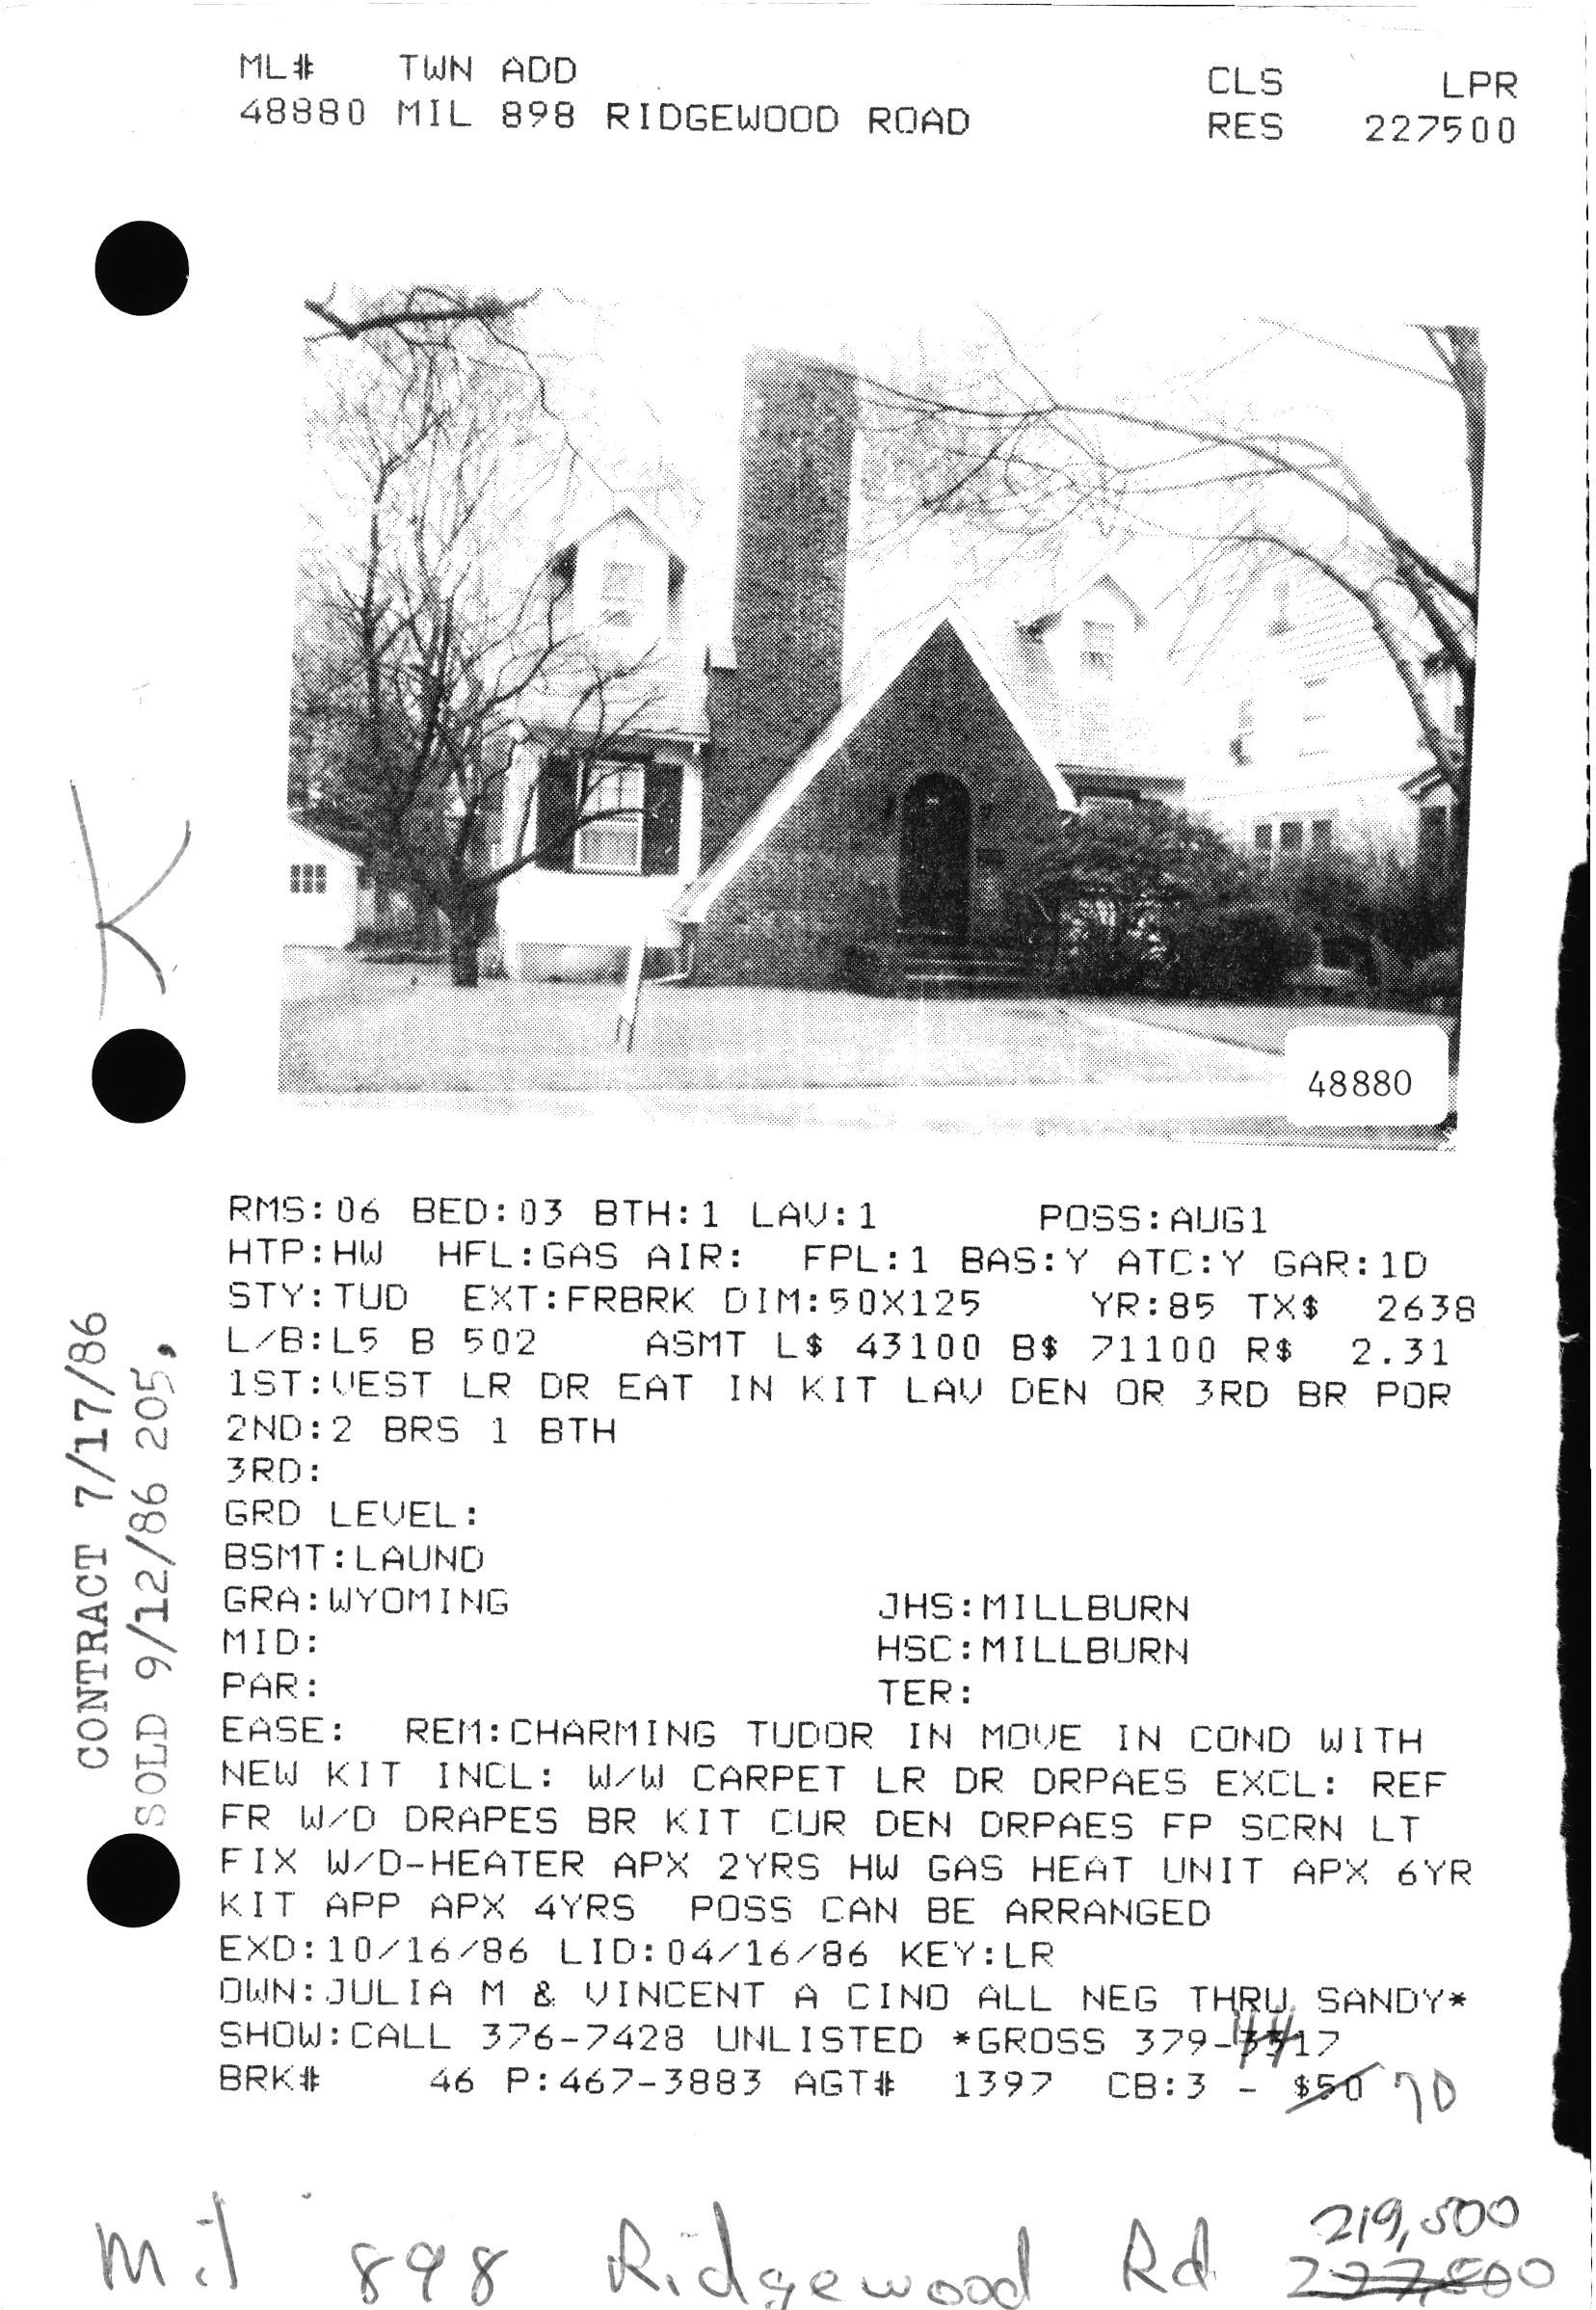 ML# TWN ADD CLS LPR
48880 MIL 898 RIDGEWOOD ROAD RES 227500
48880
K
RMS:06 BED:03 BTH:1 LAV:1 POSS:AUG1
HTP:HW HFL:GAS AIR: FPL:1 BAS:Y ATC:Y GAR:1D
STY:TUD EXT:FRBRK DIM:50X125 YR:85 TX$ 2638
L/B:L5 B 502 ASMT L$ 43100 B$ 71100 R$ 2.31
1ST:VEST LR DR EAT IN KIT LAV DEN OR 3RD BR POR
2ND:2 BRS 1 BTH
3RD:
GRD LEVEL:
BSMT:LAUND
GRA:WYOMING JHS:MILLBURN
MID: HSC:MILLBURN
PAR: TER:
EASE: REM:CHARMING TUDOR IN MOVE IN COND WITH
NEW KIT INCL: W/W CARPET LR DR DRPAES EXCL: REF
FR W/D DRAPES BR KIT CUR DEN DRPAES FP SCRN LT
FIX W/D-HEATER APX 2YRS HW GAS HEAT UNIT APX 6YR
KIT APP APX 4YRS POSS CAN BE ARRANGED
EXD:10/16/86 LID:04/16/86 KEY:LR
OWN:JULIA M & VINCENT A CINO ALL NEG THRU SANDY*
SHOW:CALL 376-7428 UNLISTED *GROSS 379-4417
BRK# 46 P:467-3883 AGT# 1397 CB:3 - $50 70
CONTRACT 7/17/86
SOLD 9/12/86 205,
219,500
Mil 898 Ridgewood Rd 227,500